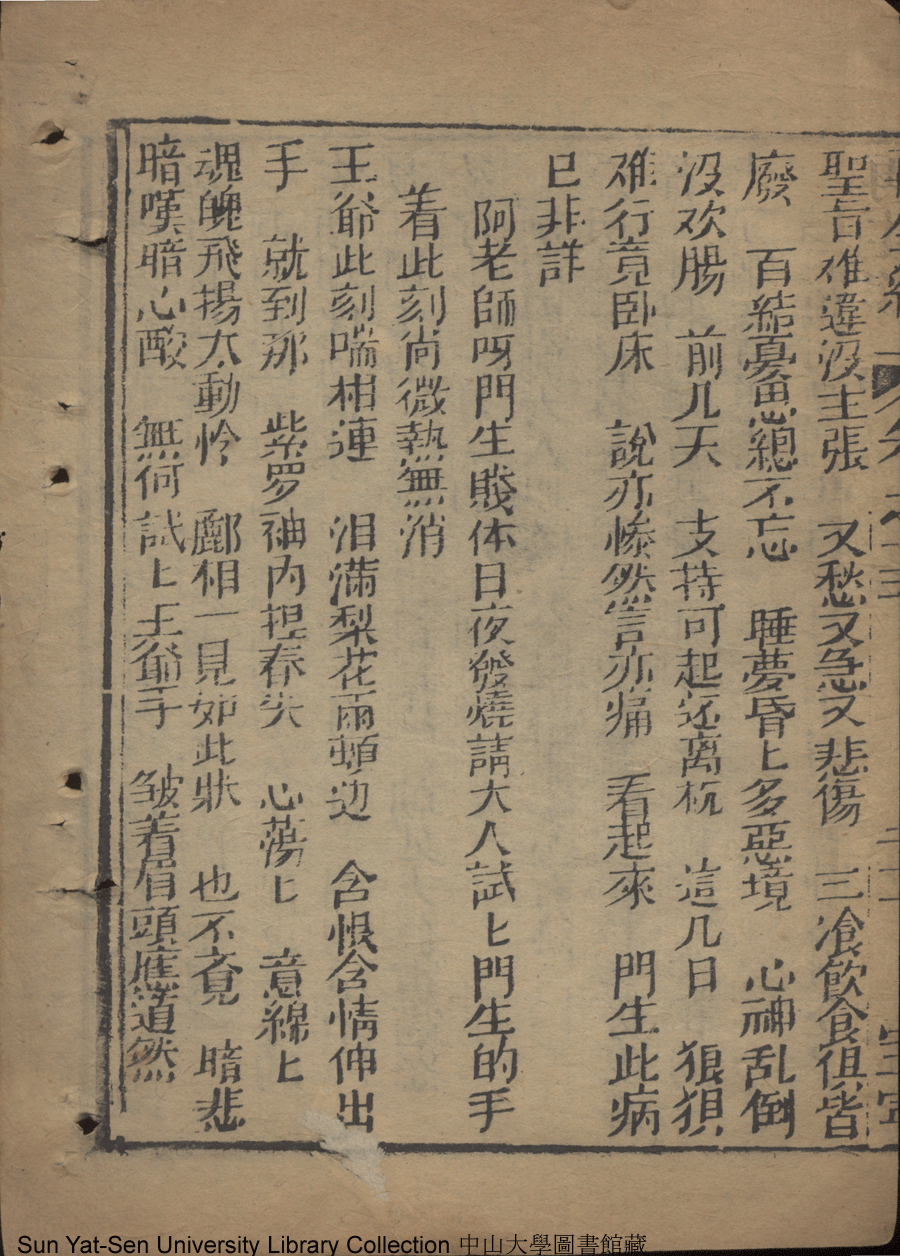 聖旨难違没主張 又愁又急又悲傷 三飡飲食俱皆
廢 百結憂思總不忘 睡夢昏匕多惡境 心神乱倒
没欢腸 前几天 支持可起还离杭 這几日 狼狽
难行竟卧床 說亦慘然言亦痛 看起來 門生此病
已非詳
阿老師呀門生賎体日夜發燒請大人試匕門生的手
着此刻尚微熱無消
王爺此刻喘相連 泪滿梨花雨頰边 含恨含情伸出
手 就到那 紫罗袖内揑春尖 心蕩匕 意綿匕
魂魄飛揚太動怜 酈相一見如此狀 也不竟 暗悲
暗嘆暗心酸 無何試匕王爺手 皱着眉頭應道然
Sun Yat-Sen University Library Collection 中山大學圖書館藏